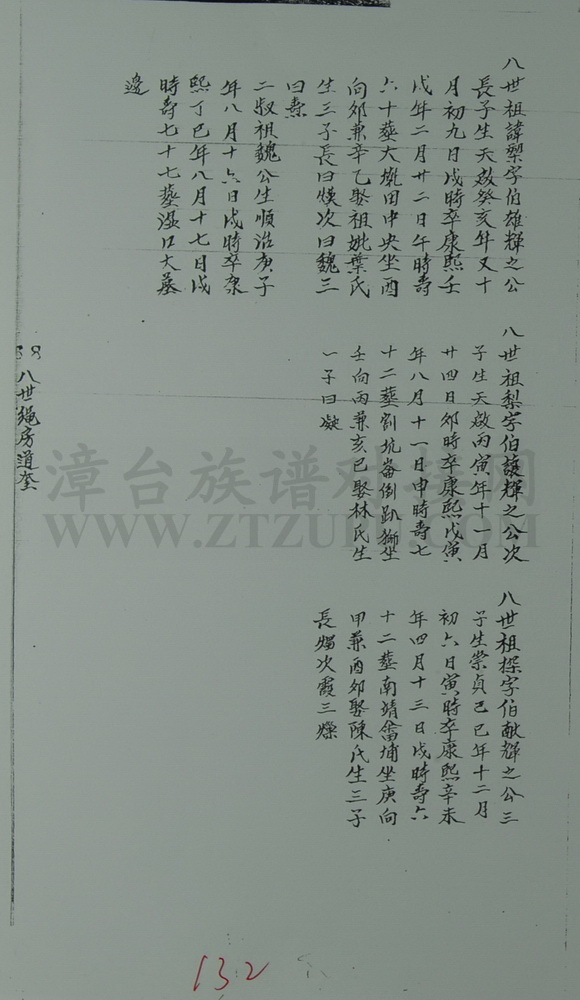 八世祖諱犁字伯雄輝之公
長子生天啟癸亥年又十
月初九日戌時卒康熙壬
戌年二月廿二日午時壽
六十葬大墘田中央坐酉
向卯兼辛乙娶祖妣葉氏
生三子長曰煐次曰魏三
曰燾
二叔祖魏公生順治庚子
年八月十六日戌時卒康
熙丁巳年八月十七日戌
時壽七十七葬湿口大墓
邊
八世祖梨字伯護輝之公次
子生天啟丙寅年十一月
廿四日卯時卒康熙戊寅
年八月十一日申時壽七
十二葬割坑崙倒趴獅坐
壬向丙兼亥巳娶林氏生
一子曰凝
八世祖探字伯献輝之公三
子生崇貞己巳年十二月
初六日寅時卒康熙辛未
年四月十三日戌時壽六
十二葬南靖崙埔坐庚向
甲兼酉卯娶陳氏生三子
長燭次霞三燦
38 八世繩房道奎
漳台族谱对接网
WWW.ZTZUPU.COM
132